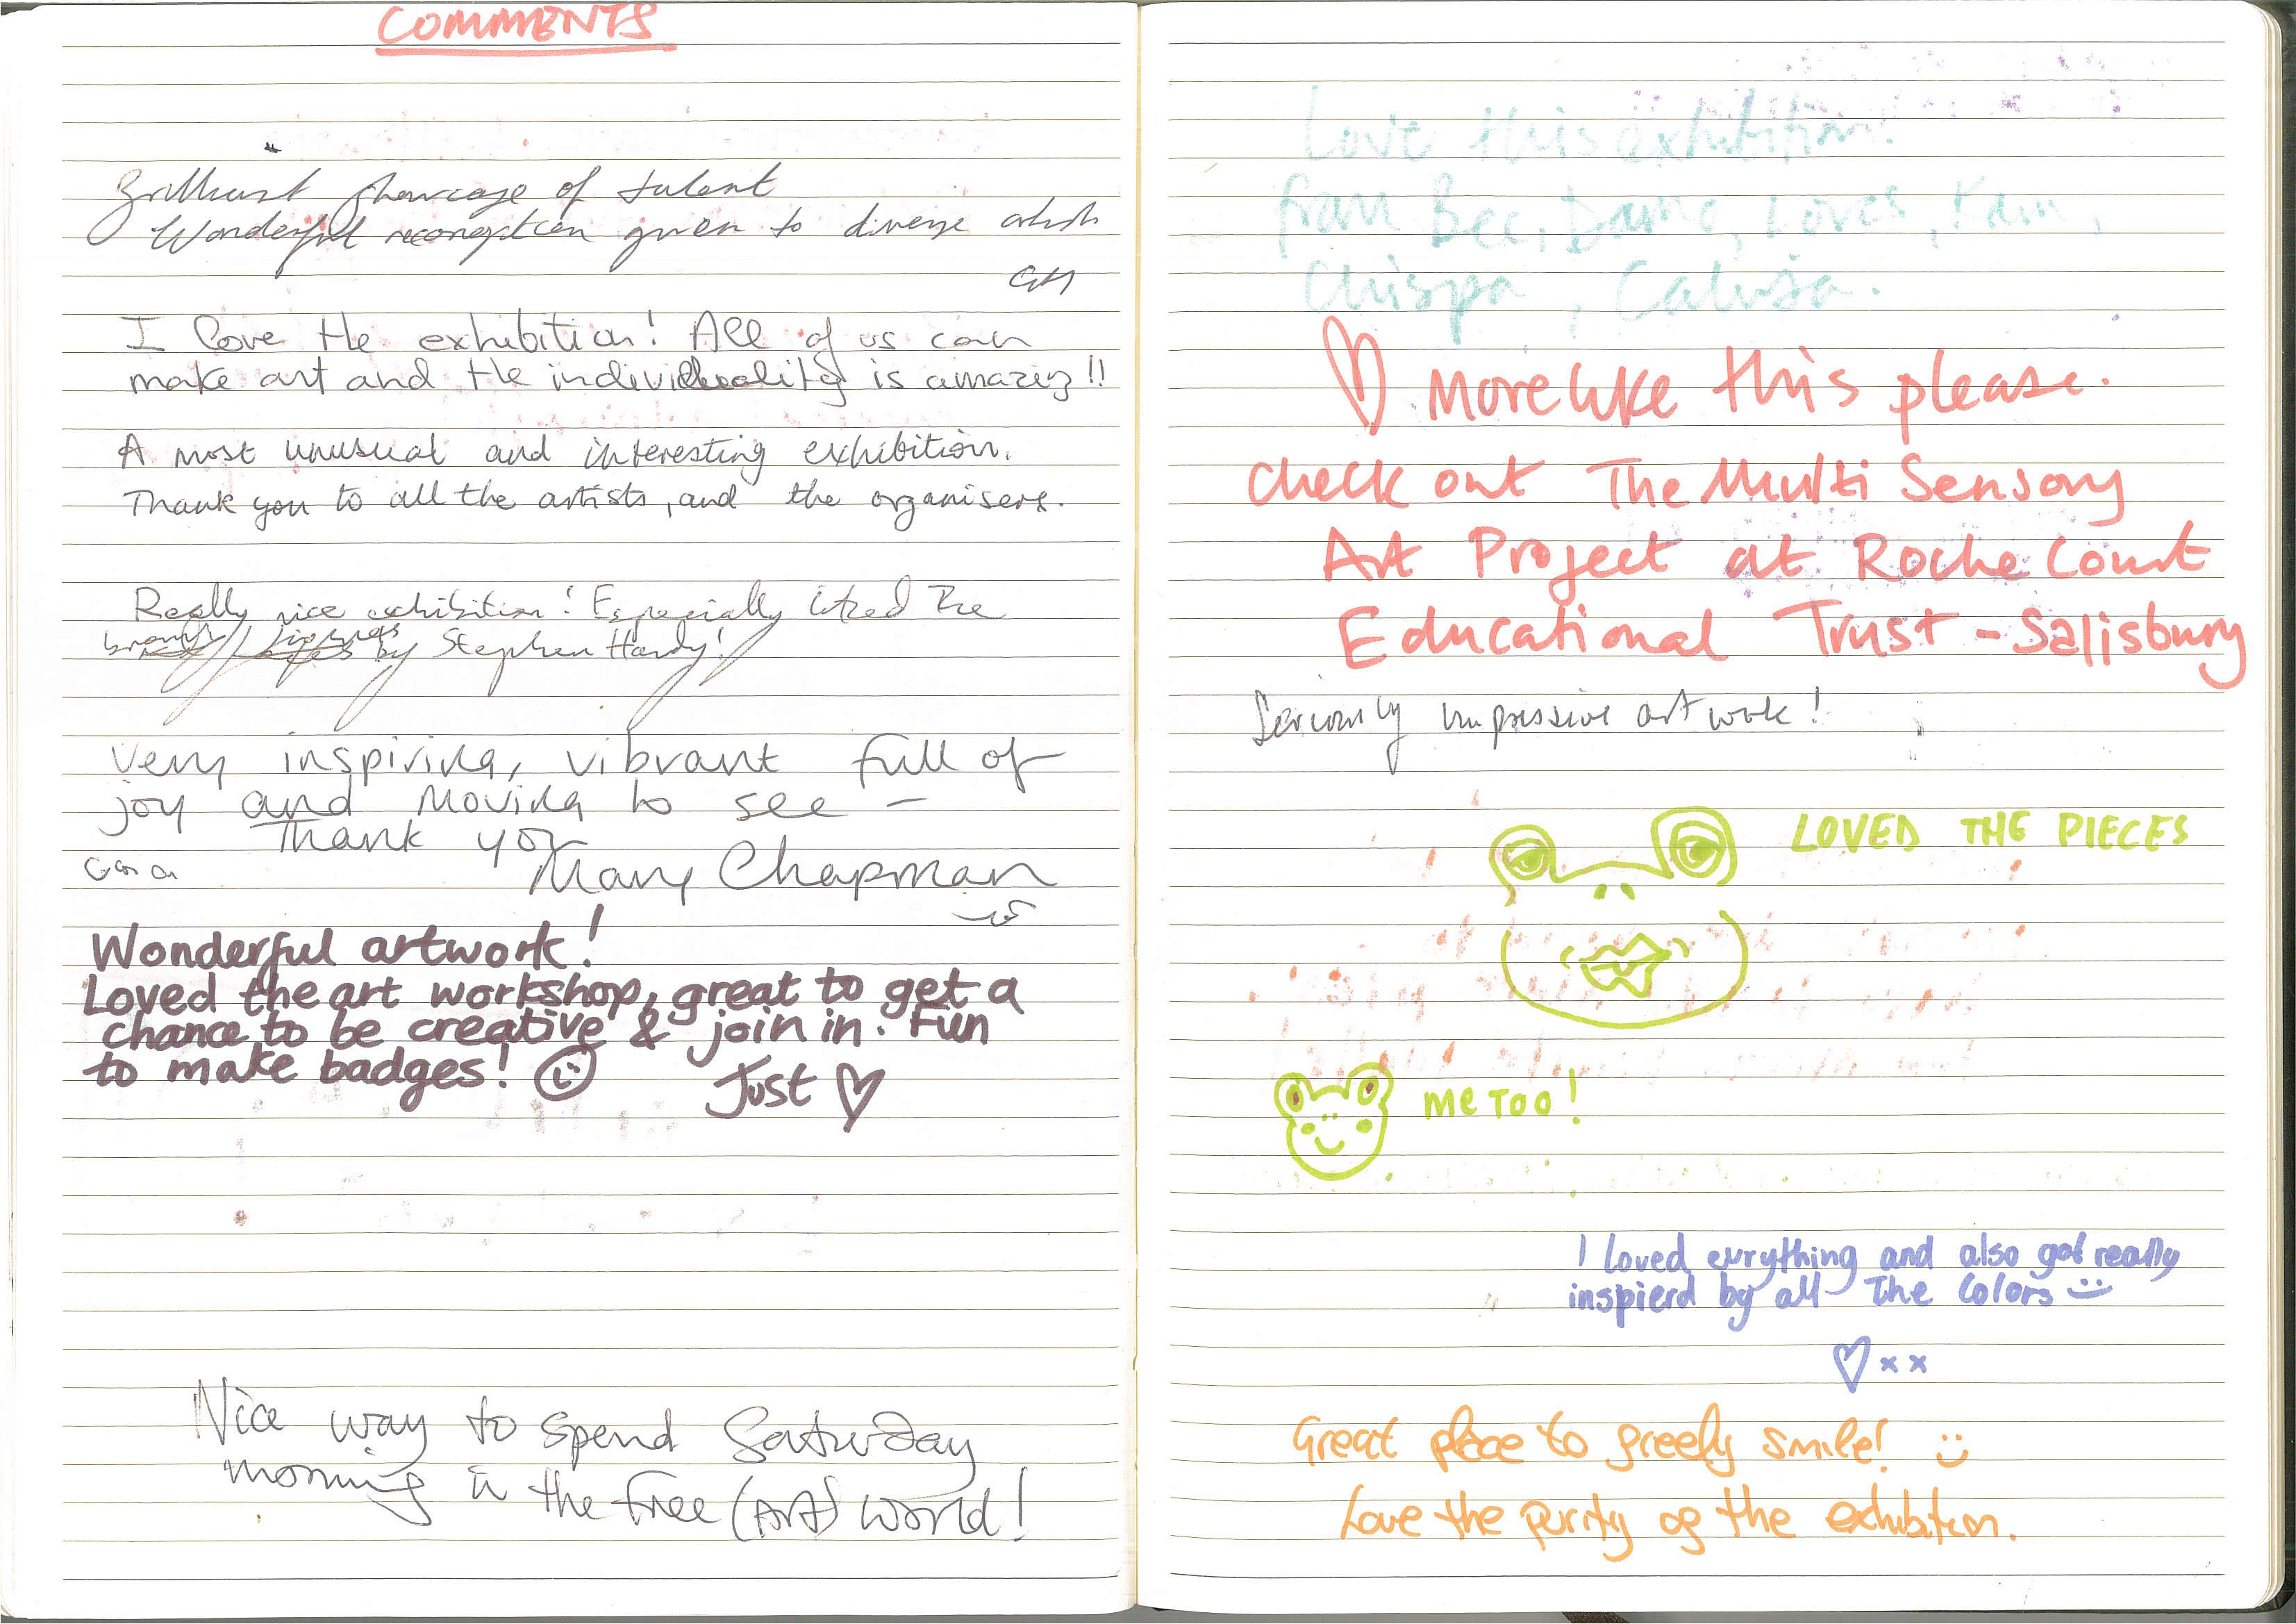 COMMENTS
Brilliant showcase of talent
Wonderful recongition given to diverse artists
GH
I love the exhibition! All of us can
make art and the individuality is amazing!!
A most unusual and interesting exhibition.
Thank you to all the artists, and the organisers.
Really nice exhibition! Especially liked the
by Stephen Hardy!
Very inspiring, vibrant full of
joy and moving to see –
Thank you
Mary Chapman
Wonderful artwork!
Loved the art workshop, great to get a
chance to be creative & join in. Fun
to make badges!
Just
Nice way to spend Saturday
morning in the free (Art) World!
Love this exhibition.
from Bec,
Chispa
♡ More like this please.
Check out The Multi Sensory
Art Project at Roche Court
Educational Trust - Salisbury
Seriously impressive art work!
LOVED THE PIECES
Me TOO!
I loved evrything and also got really
inspierd by all The Colors
♡ x x
Great place to freely smile!
Love the purity of the exhibition.